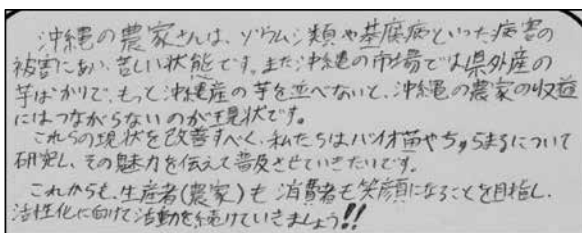 沖縄の農家さんは、ゾウムシ類や基腐病といった病害の
被害にあい、苦しい状態です。また沖縄の市場では県外産の
芋ばかりで、もっと沖縄産の芋を並べないと、沖縄の農家の収益
にはつながらないのが現状です。
これらの現状を改善すべく、私たちはバイオ苗やちゅらまるについて
研究し、その魅力を伝えて普及させていきたいです。
これからも、生産者(農家)も消費者も笑顔になることを目指し、
活性化に向けて活動を続けていきましょう!!